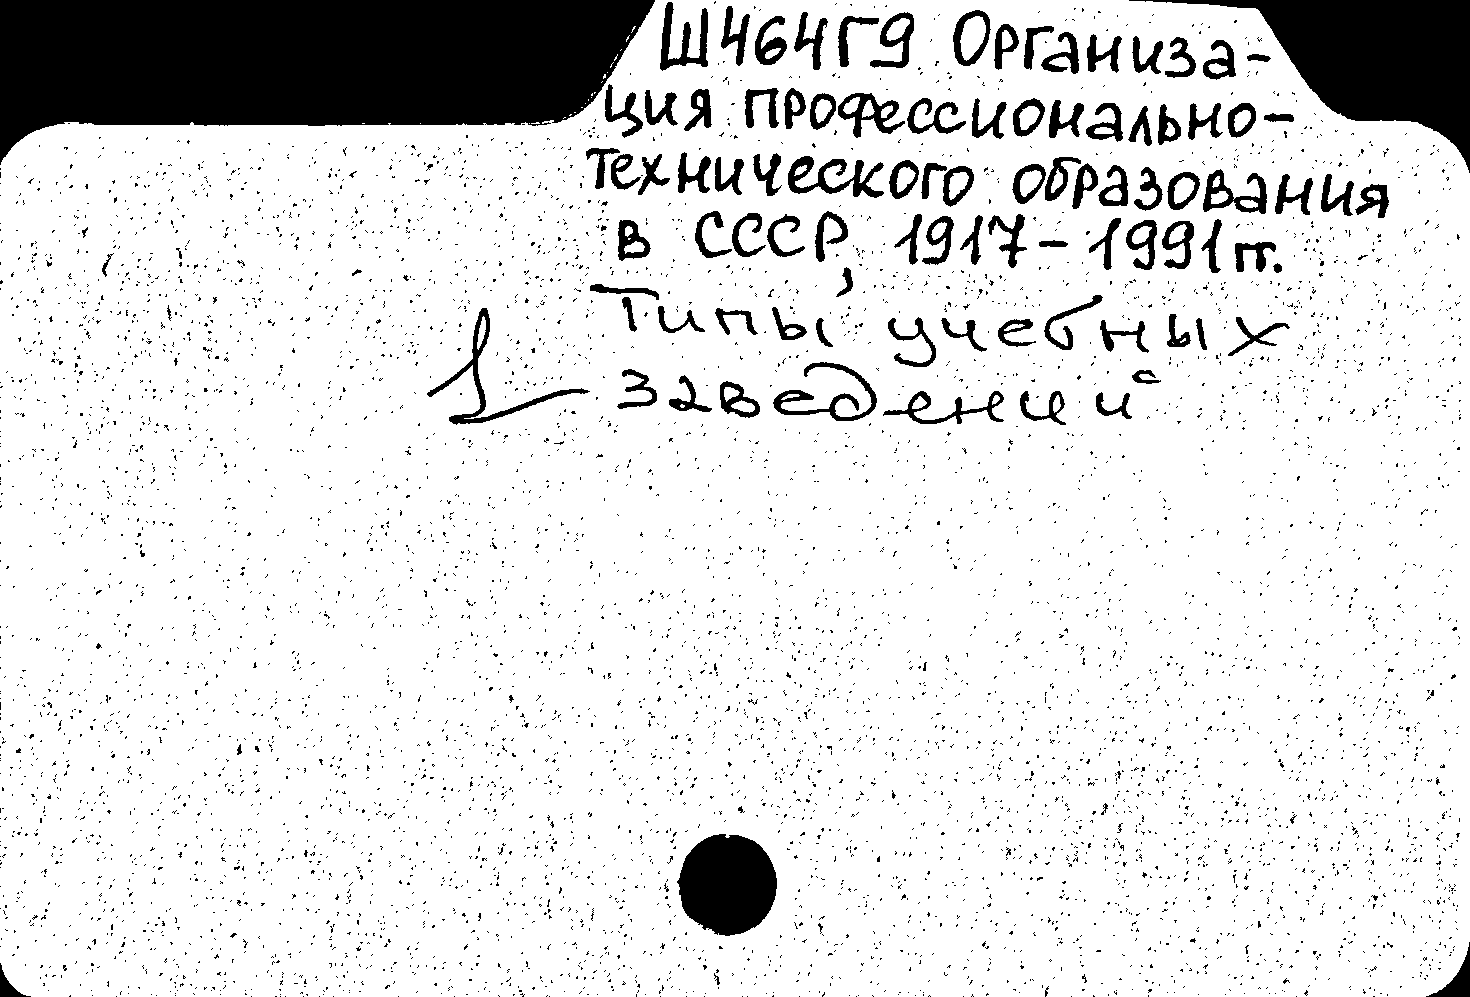 Ш464Г9 Организа-
ция профессионально-
технического образования
в СССР, 1917-1991 гг.
Типы учебных
заведений